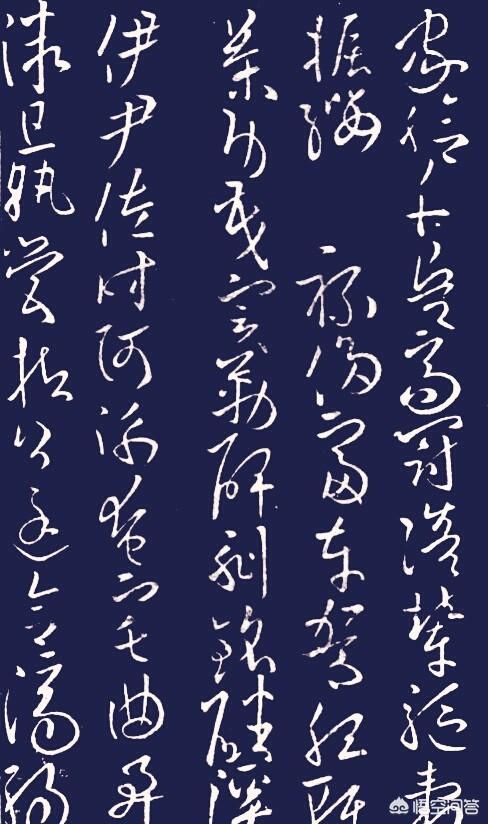 家給千兵高冠陪輦驅轂
振纓 祿侈富車駕肥輕
策功茂實勒碑刻銘磻溪
伊尹佐時阿衡奄宅曲阜
微旦孰營桓公匡合濟弱
悟空问答